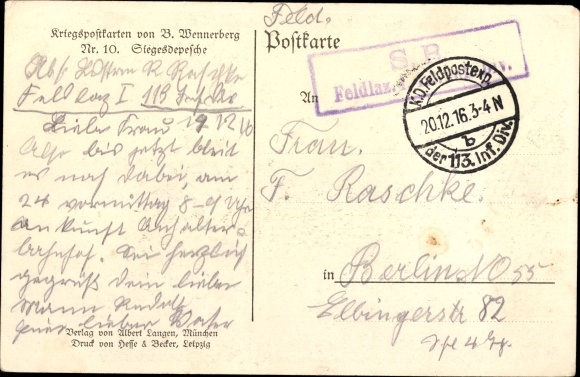 Kriegspostkarten von B. Wennerberg
Nr. 10. Siegesdepesche
Abs. R. Raschke
Feldlaz I 113
Liebe Frau 19 12 16
Also bis jetzt bleibt
es noch dabei, am
24 vormittag 8-9 Uhr
Ankunft
bahnhof. Sei herzlich
gegrüßt Dein lieber
Mann Rudolf
lieber Vater
Verlag von Albert Langen, München
Druck von Hesse & Becker, Leipzig
Feld.
Postkarte
S. B.
Feldlaz.
K.D. Feldpostexp.
20.12.16. 3-4 N
b
der 113. Inf. Div.
An
Frau.
F. Raschke.
in Berlin NO 55
Elbingerstr 82